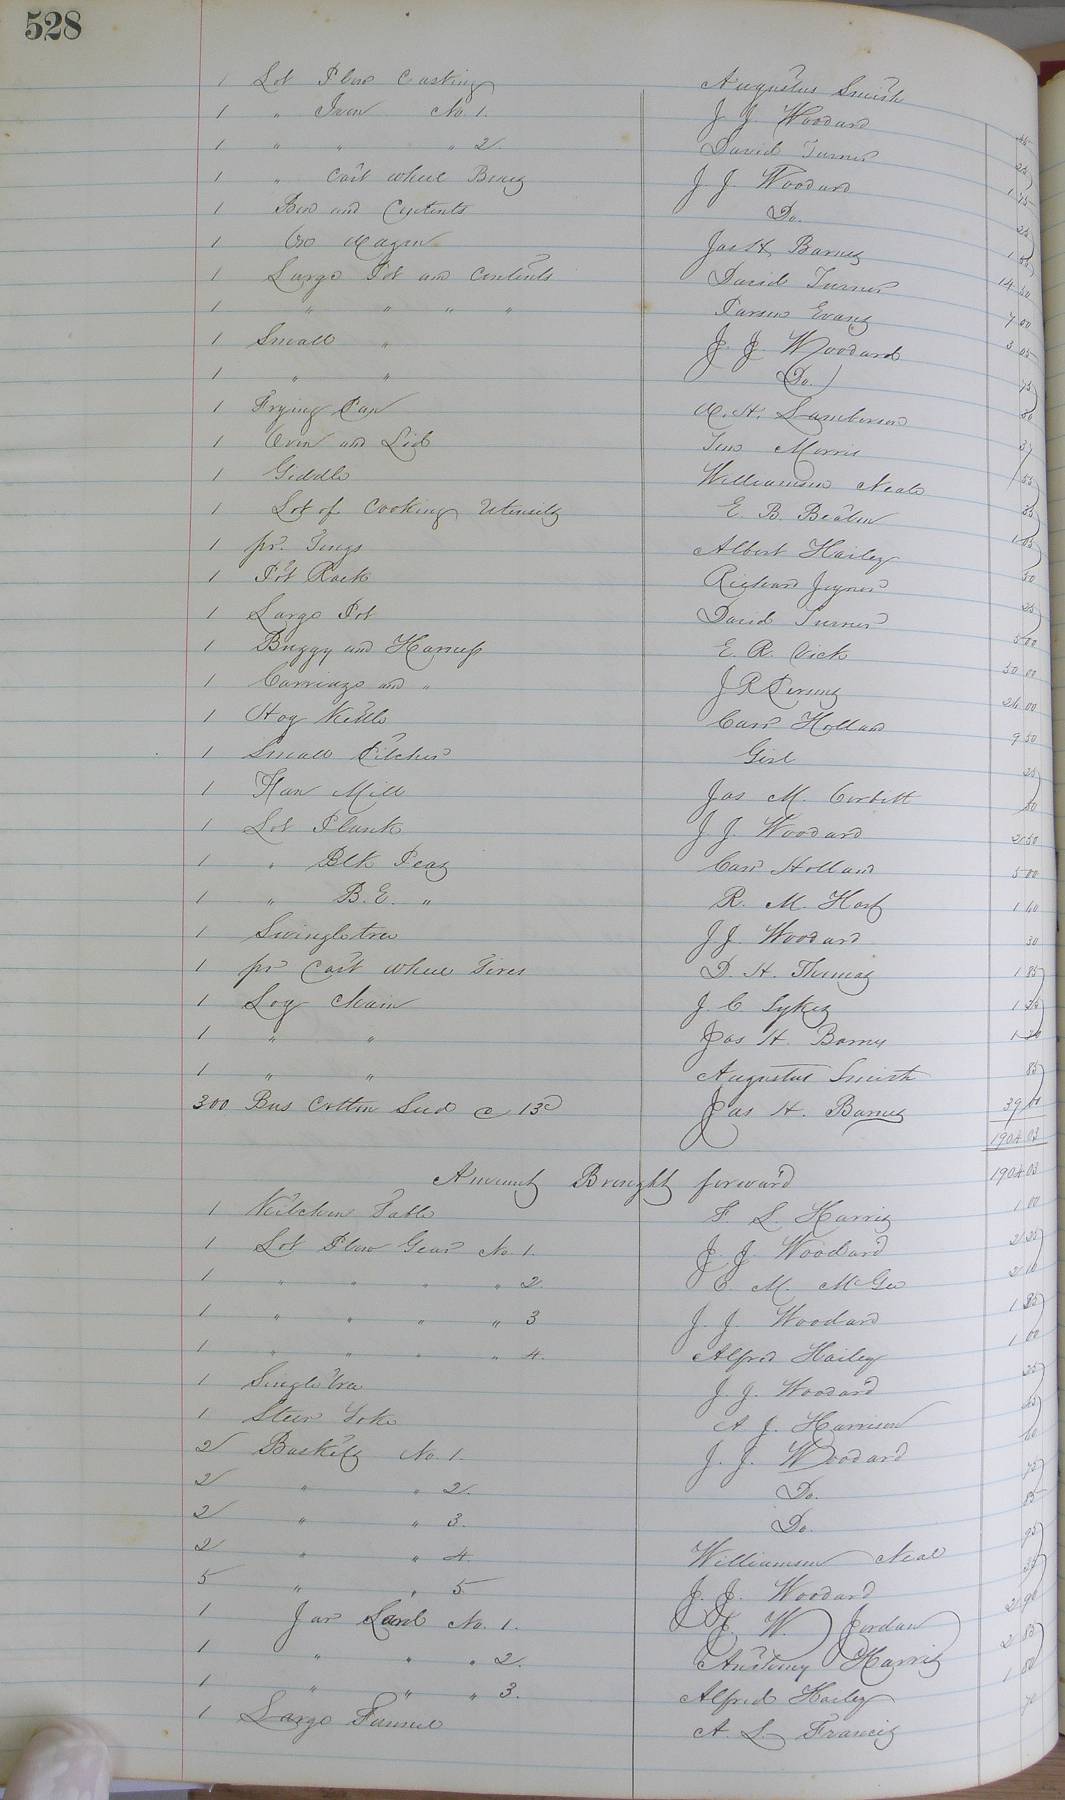 528
1 Lot Plow Casting Augustus Smith
1 " Iron No. 1. J. J. Woodard 25
1 " " " 2. David Turner 25
1 " Cart wheel Boxes J. J. Woodard 1 75
1 Box and Contents Do. 25
1 Ox Wagon Jas H. Barnes 14 50
1 Large Pot and Contents David Turner
1 " " " " Parson Evans 3 05
1 Small " J. J. Woodard 75
1 " " Do.
1 Frying Pan W. H. Lamberson
1 Oven and Lid Morris 55
1 Griddle Williamson Neale
1 Lot of Cooking Utensils E. B. Beaton 1 05
1 pr. Tongs Albert Hailey 50
1 Pot Rack Richard Joyner 25
1 Large Pot David Turner 5 00
1 Buggy and Harness E. R. Vick 50 00
1 Carriage and " J R 26 00
1 Hog Kettle Carr Holland 9 50
1 Small Pitcher Girl 25
1 Fan Mill Jas M. Corbitt 50
1 Lot Plank J J. Woodard 2 50
1 " Blk Peas Carr Holland 5 00
1 " B. E. " R. M. Hart 1 40
1 Swingletree J J. Woodard 30
1 pr Cart wheel Tires D. H. Thomas 1 85
1 Log Chain J. C Sykes 1 25
1 " " Jas H. Barnes 1 20
1 " " Augustus Smith 85
300 Bus Cotton Seed @ 13c Jas H. Barnes 39 00
1904 03
Amounts Brought forward 1904 03
1 Kitchen Table F. L. Harris 1 00
1 Lot Plow Gear No. 1. J. J. Woodard 2 25
1 " " " " 2. C. M. McGee 2 10
1 " " " " 3 J. J. Woodard 1 35
1 " " " " 4. Alfred Hailey 1 00
1 Singletree J. J. Woodard 25
1 Steer Yoke A J. Harrison
2 Baskets No. 1. J. J. Woodard
2 " " 2. Do. 85
2 " " 3. Do. 95
2 " " 4 Williamson Neal 35
5 " " 5. J. J. Woodard 2 90
1 Jar Lard No. 1. J. W. Jordan 2 85
1 " " " 2. Anthony Harris 1 50
1 " " " 3. Alfred Hailey
1 Large Funnel A. L. Francis